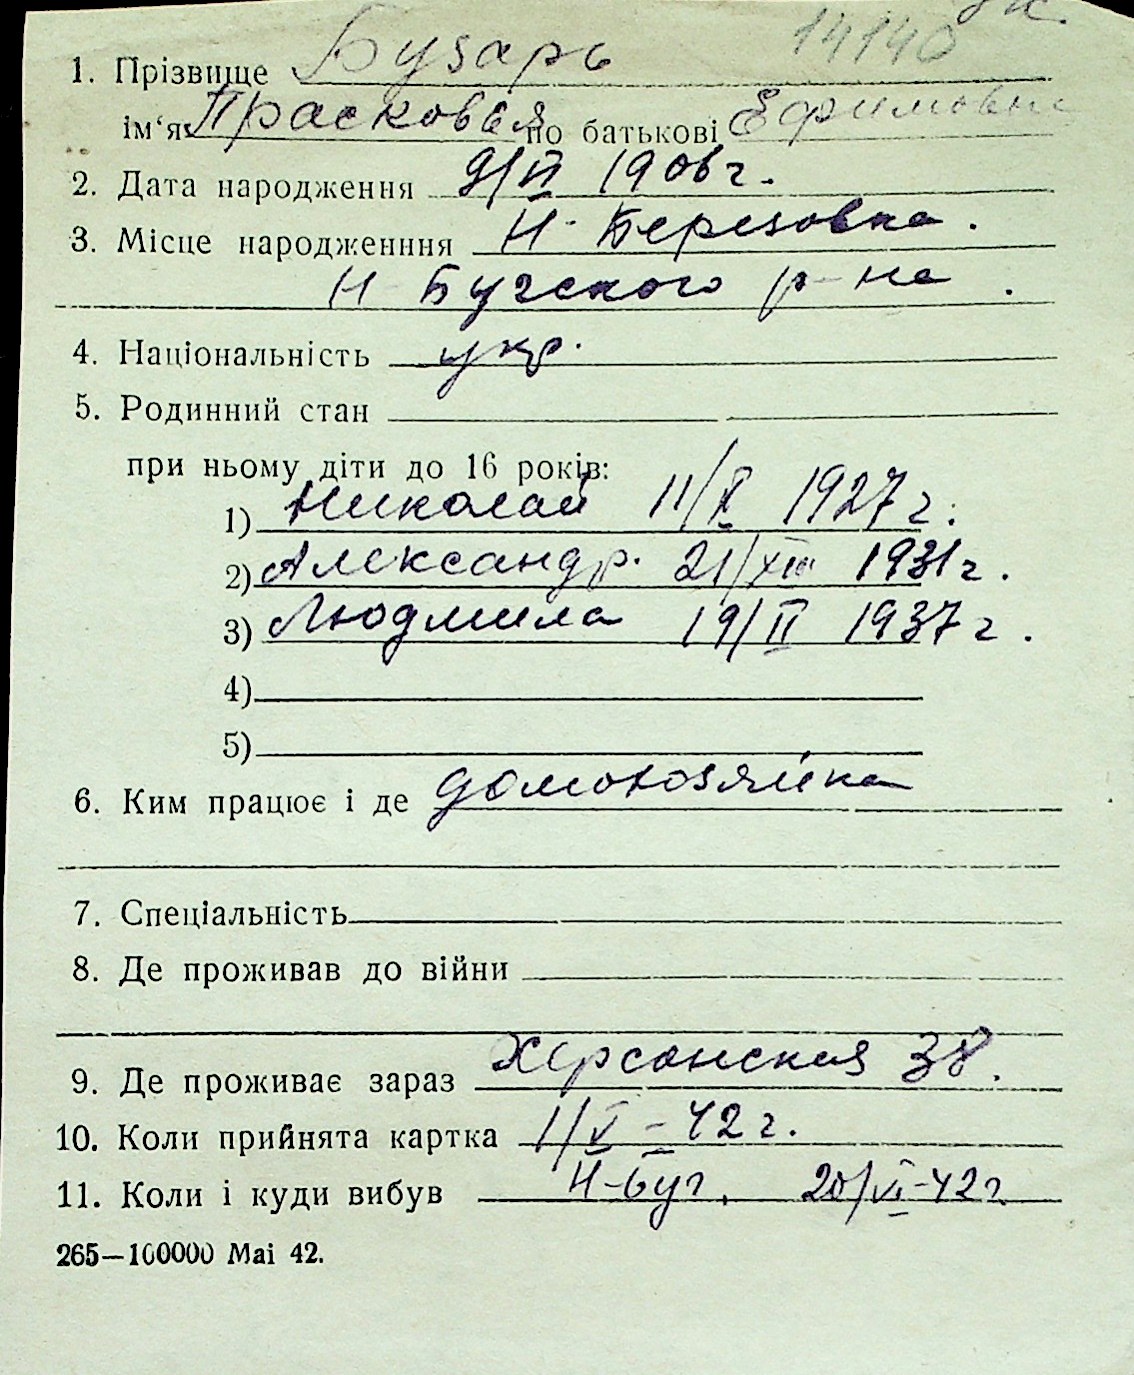 14140
1. Прізвище Бузарь
ім‘я Прасковья по батькові Ефимовна
2. Дата народження 9/II 1906 г.
3. Місце народженння Н-Березовка.
Н-Бугского р-на.
4. Національність укр.
5. Родинний стан
при ньому діти до 16 років:
1) Николай 11/X 1927 г.
2) Александр. 21/XIII 1931 г.
3) Людмила 19/II 1937 г.
4)
5)
6. Ким працює і де домохозяйка
7. Спеціальність
8. Де проживав до війни
9. Де проживає зараз Херсонская 38.
10. Коли прийнята картка 1/V-42 г.
11. Коли і куди вибув Н-Буг. 20/VI-42 г
265—100000 Mai 42.